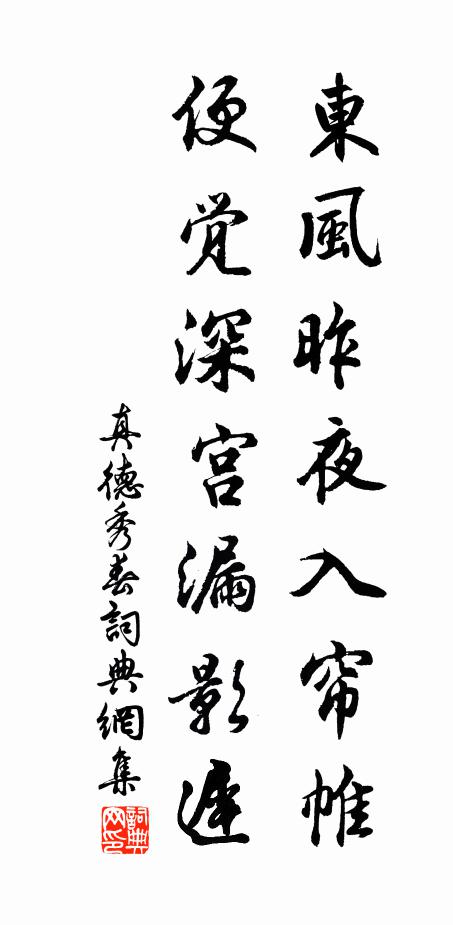 東風昨夜入帘帷
便觉深宫漏影遲
真德秀春詞典網集
詞典網印